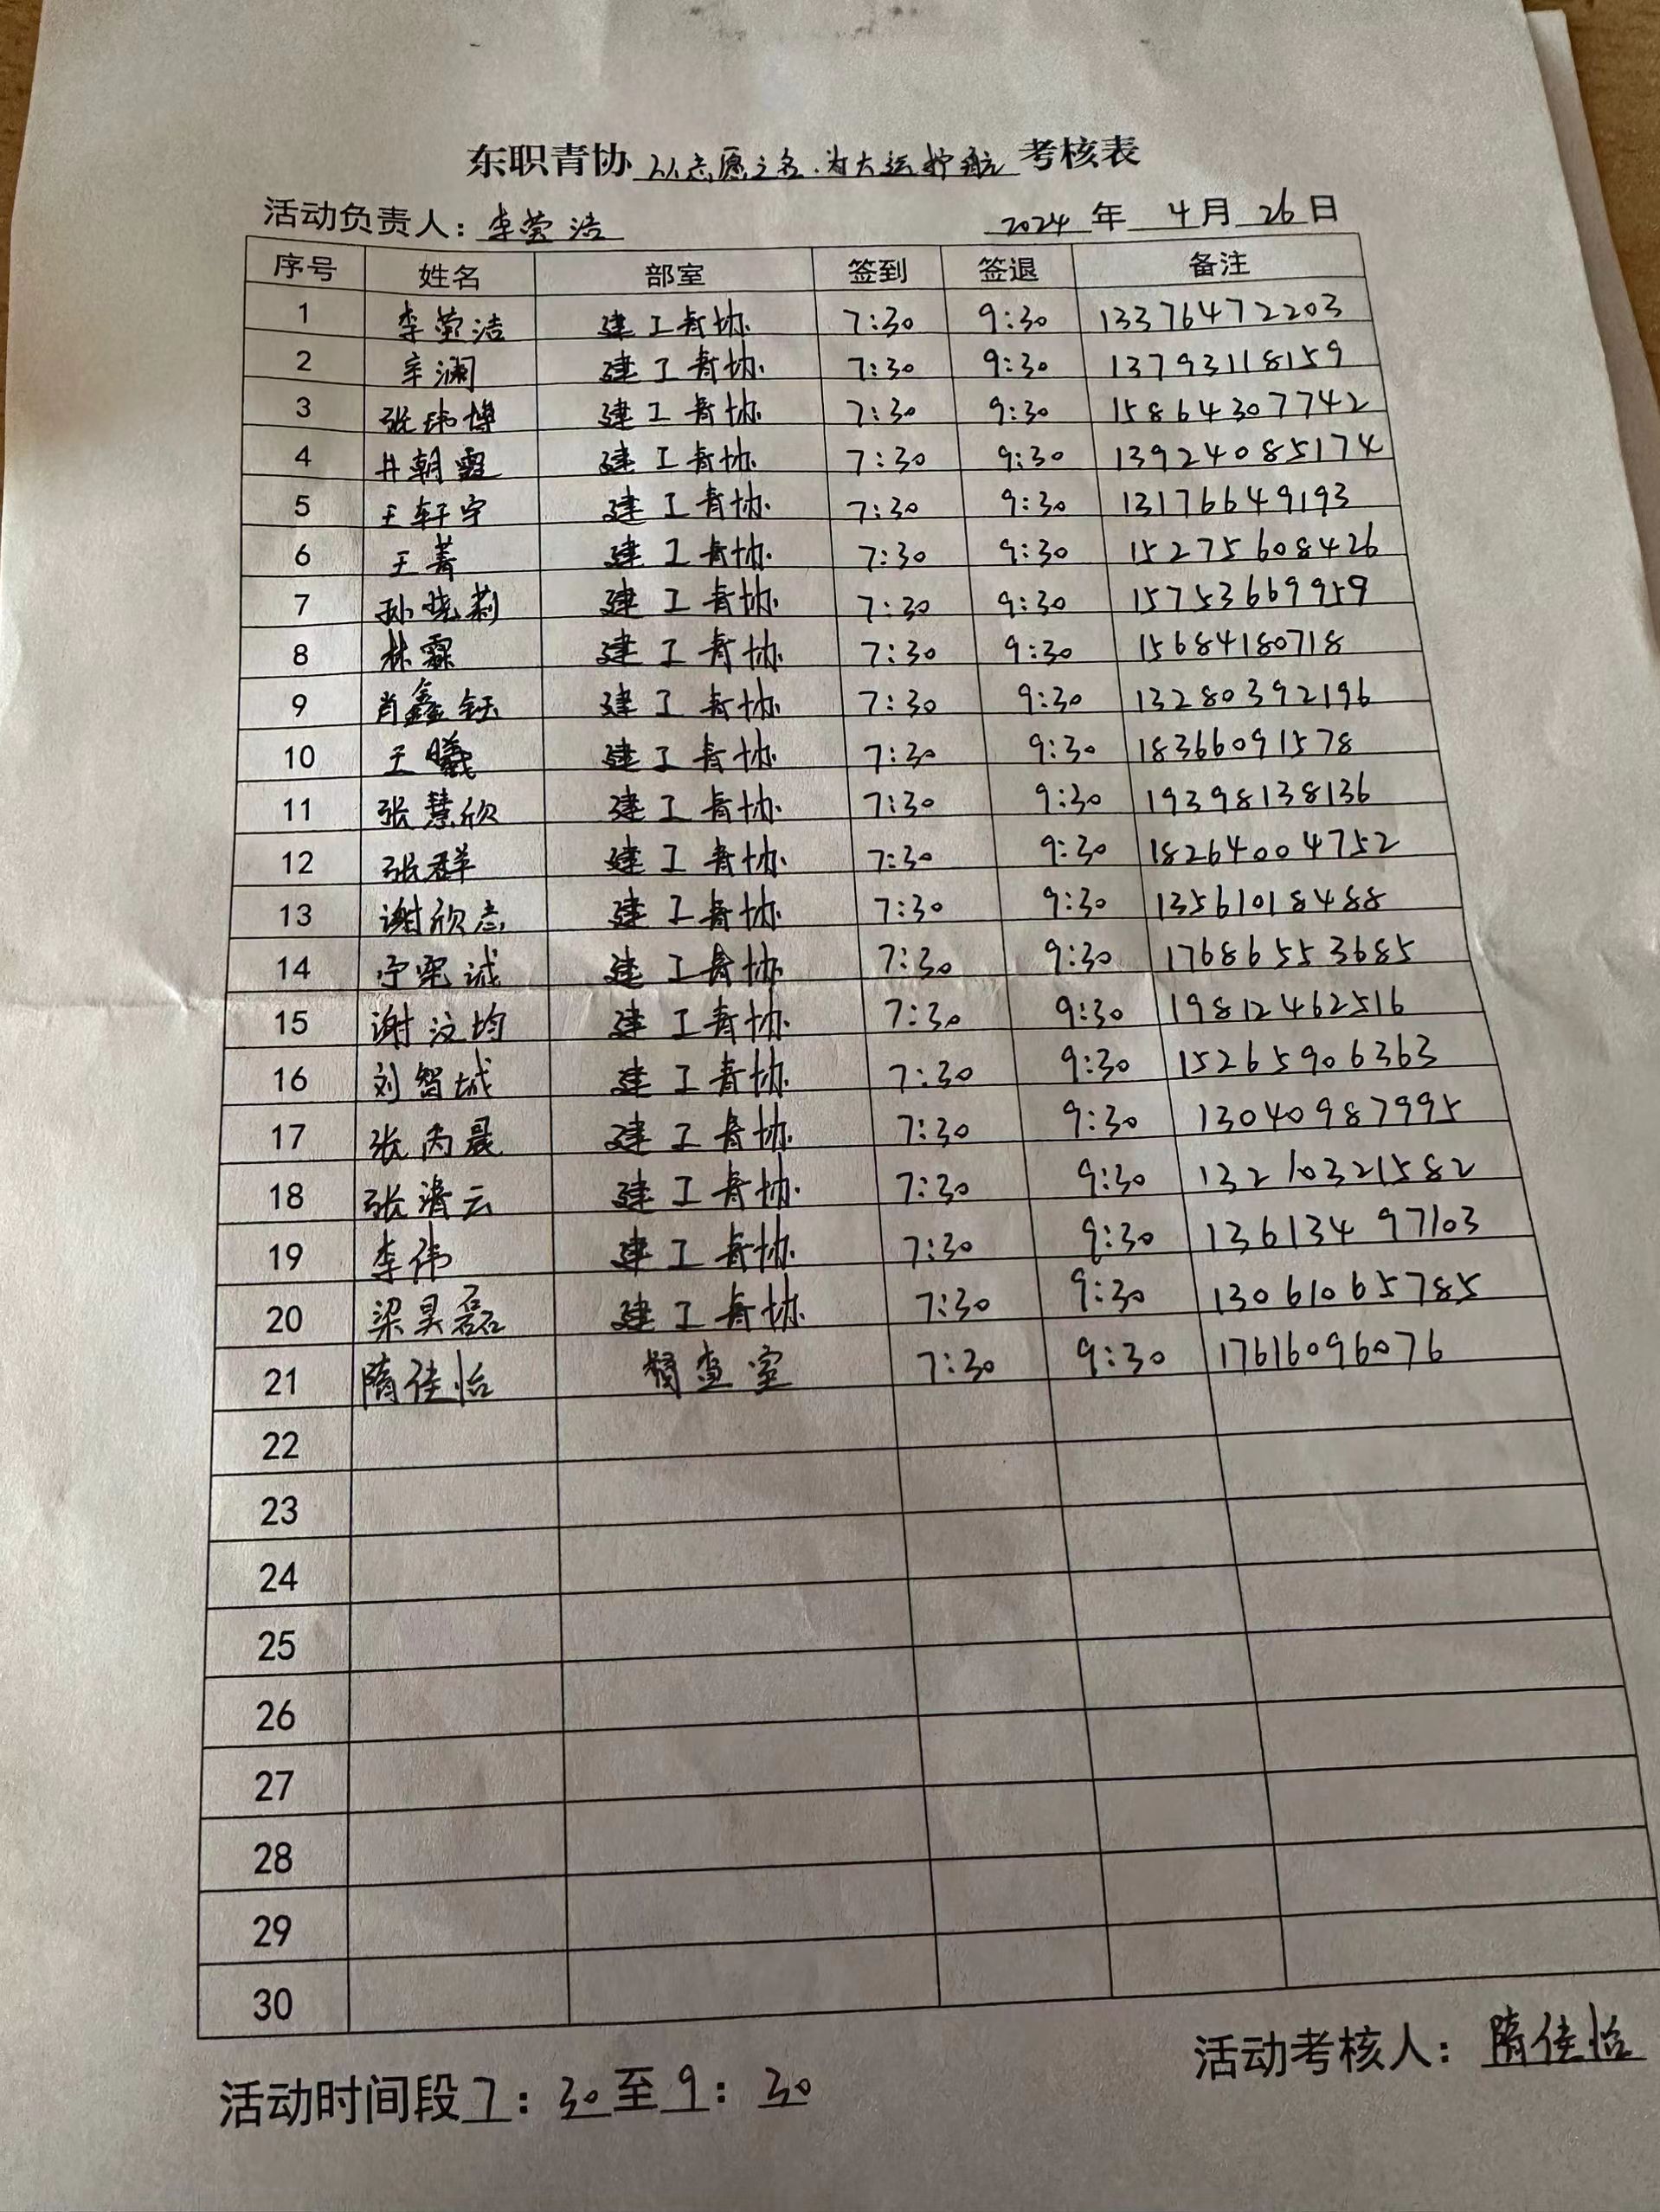 东职青协以志愿之名.为大运护航考核表
活动负责人：李莹洁 2024年 4月 26日
序号 姓名 部室 签到 签退 备注
1 李莹洁 建工青协 7:30 9:30 13376472203
2 辛澜 建工青协 7:30 9:30 13793118159
3 张玮博 建工青协 7:30 9:30 15864307742
4 井朝霞 建工青协 7:30 9:30 13924085174
5 王轩宇 建工青协 7:30 9:30 13176649193
6 王菁 建工青协 7:30 9:30 15275608426
7 孙晓莉 建工青协 7:30 9:30 15753669959
8 林霖 建工青协 7:30 9:30 15684180718
9 肖鑫钰 建工青协 7:30 9:30 13280392196
10 王曦 建工青协 7:30 9:30 18366091578
11 张慧欣 建工青协 7:30 9:30 19398138136
12 张群 建工青协 7:30 9:30 18264004752
13 谢欣志 建工青协 7:30 9:30 13561018488
14 宁荣诚 建工青协 7:30 9:30 17686553685
15 谢汶均 建工青协 7:30 9:30 19812462516
16 刘智城 建工青协 7:30 9:30 15265906363
17 张丙晨 建工青协 7:30 9:30 13040987995
18 张清云 建工青协 7:30 9:30 13210321582
19 李伟 建工青协 7:30 9:30 13613497103
20 梁昊磊 建工青协 7:30 9:30 13061065785
21 隋佳怡 督查室 7:30 9:30 17616096076
22
23
24
25
26
27
28
29
30
活动考核人：隋佳怡
活动时间段7：30至9：30